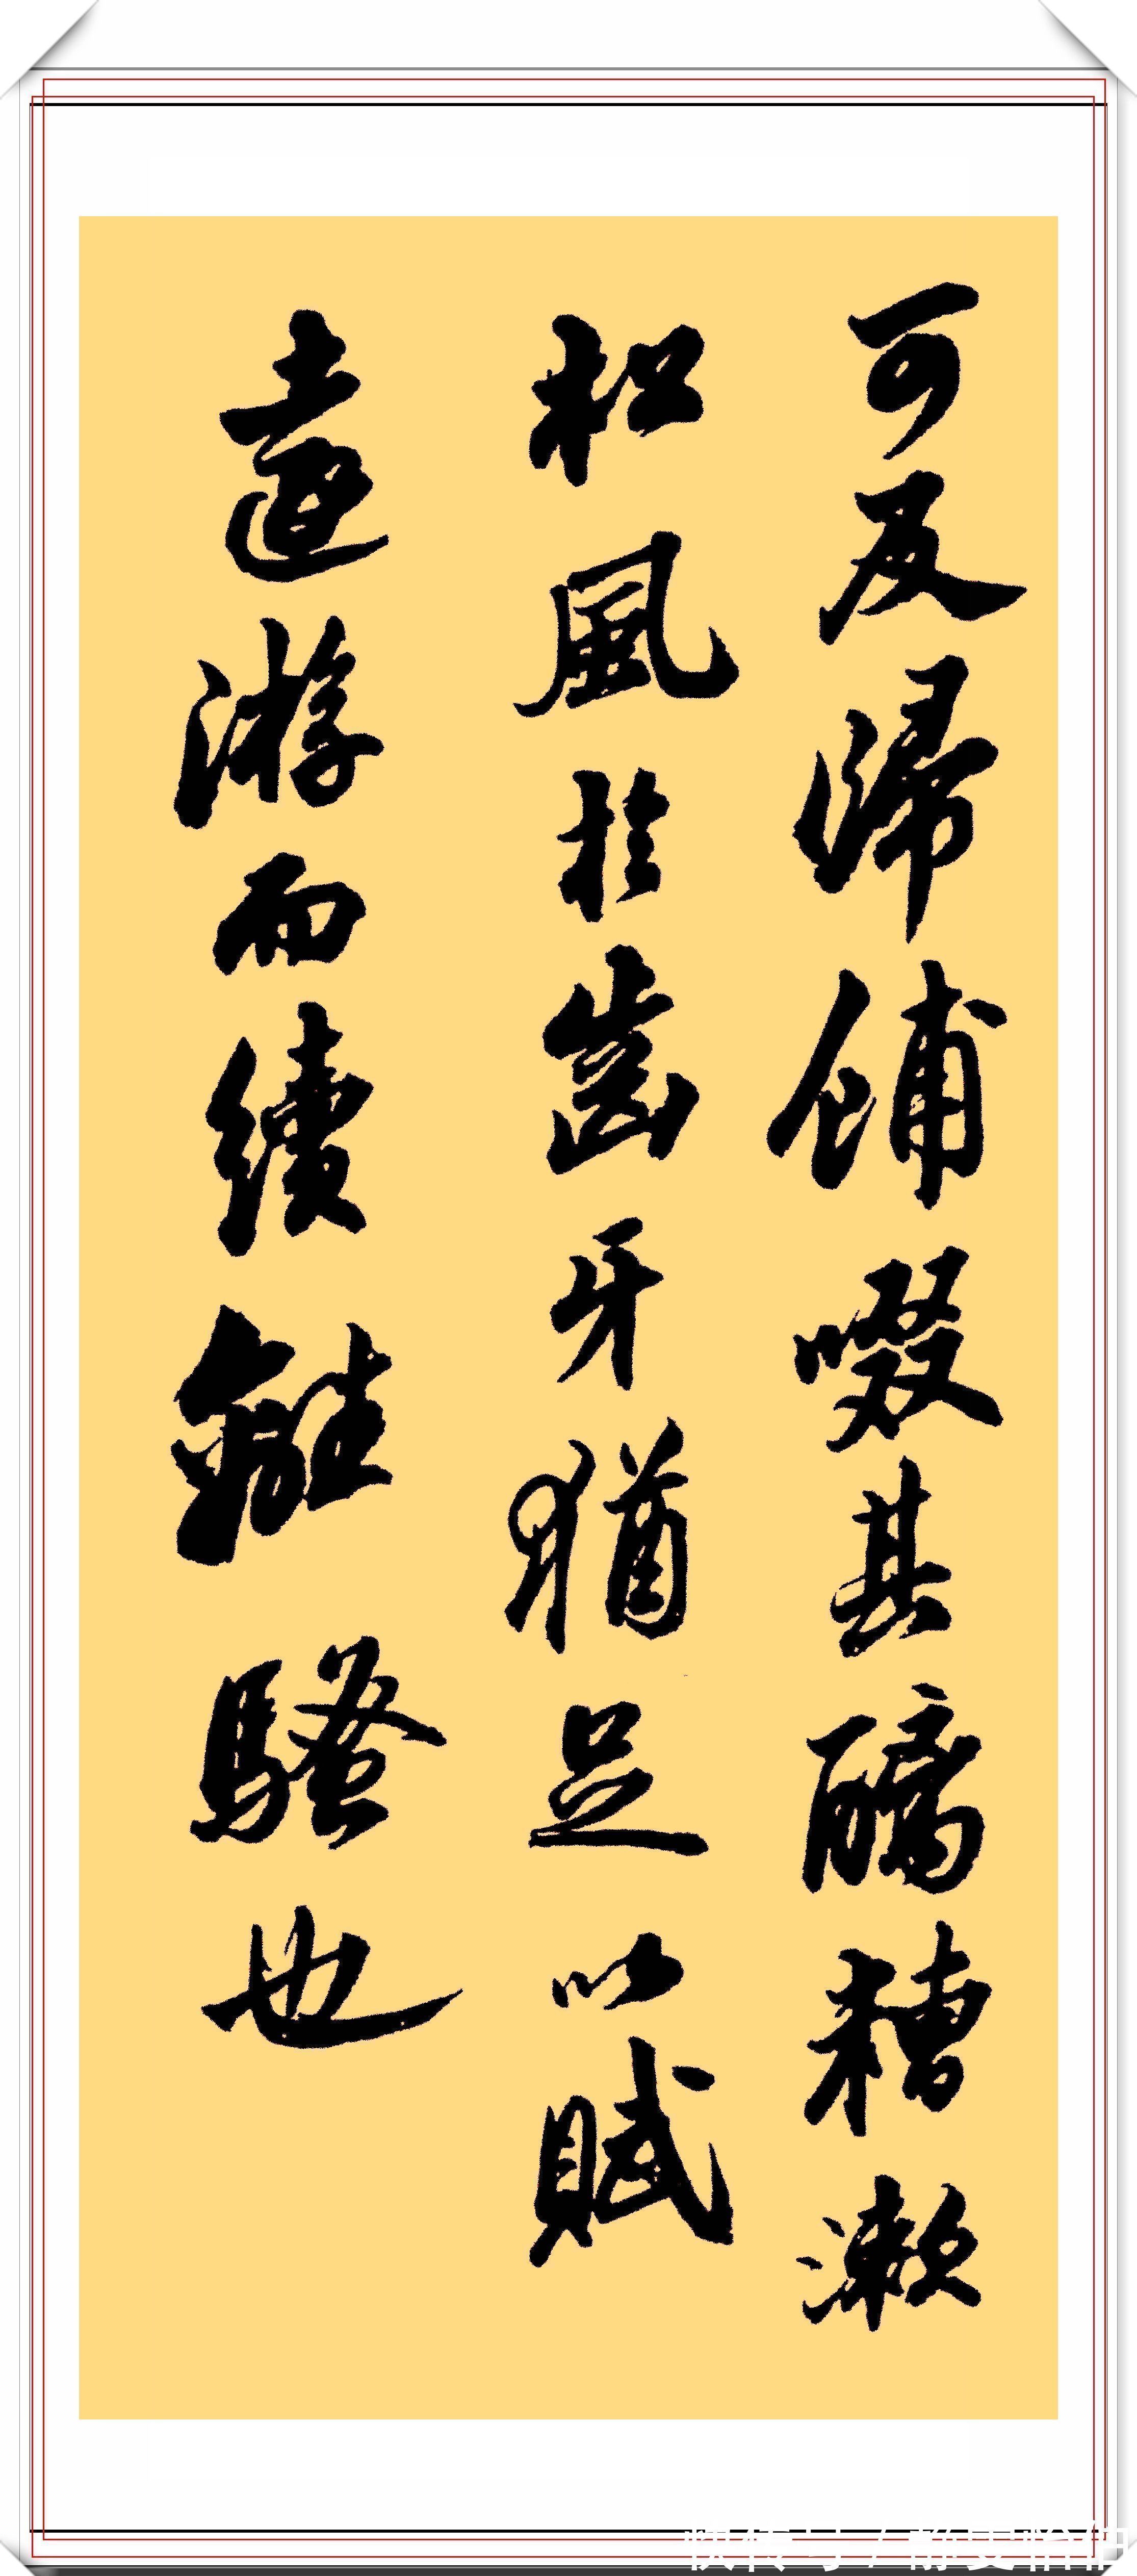 可及歸餔歠其醨糟漱
松風於齒牙猶足以賦
遠游而續離騷也